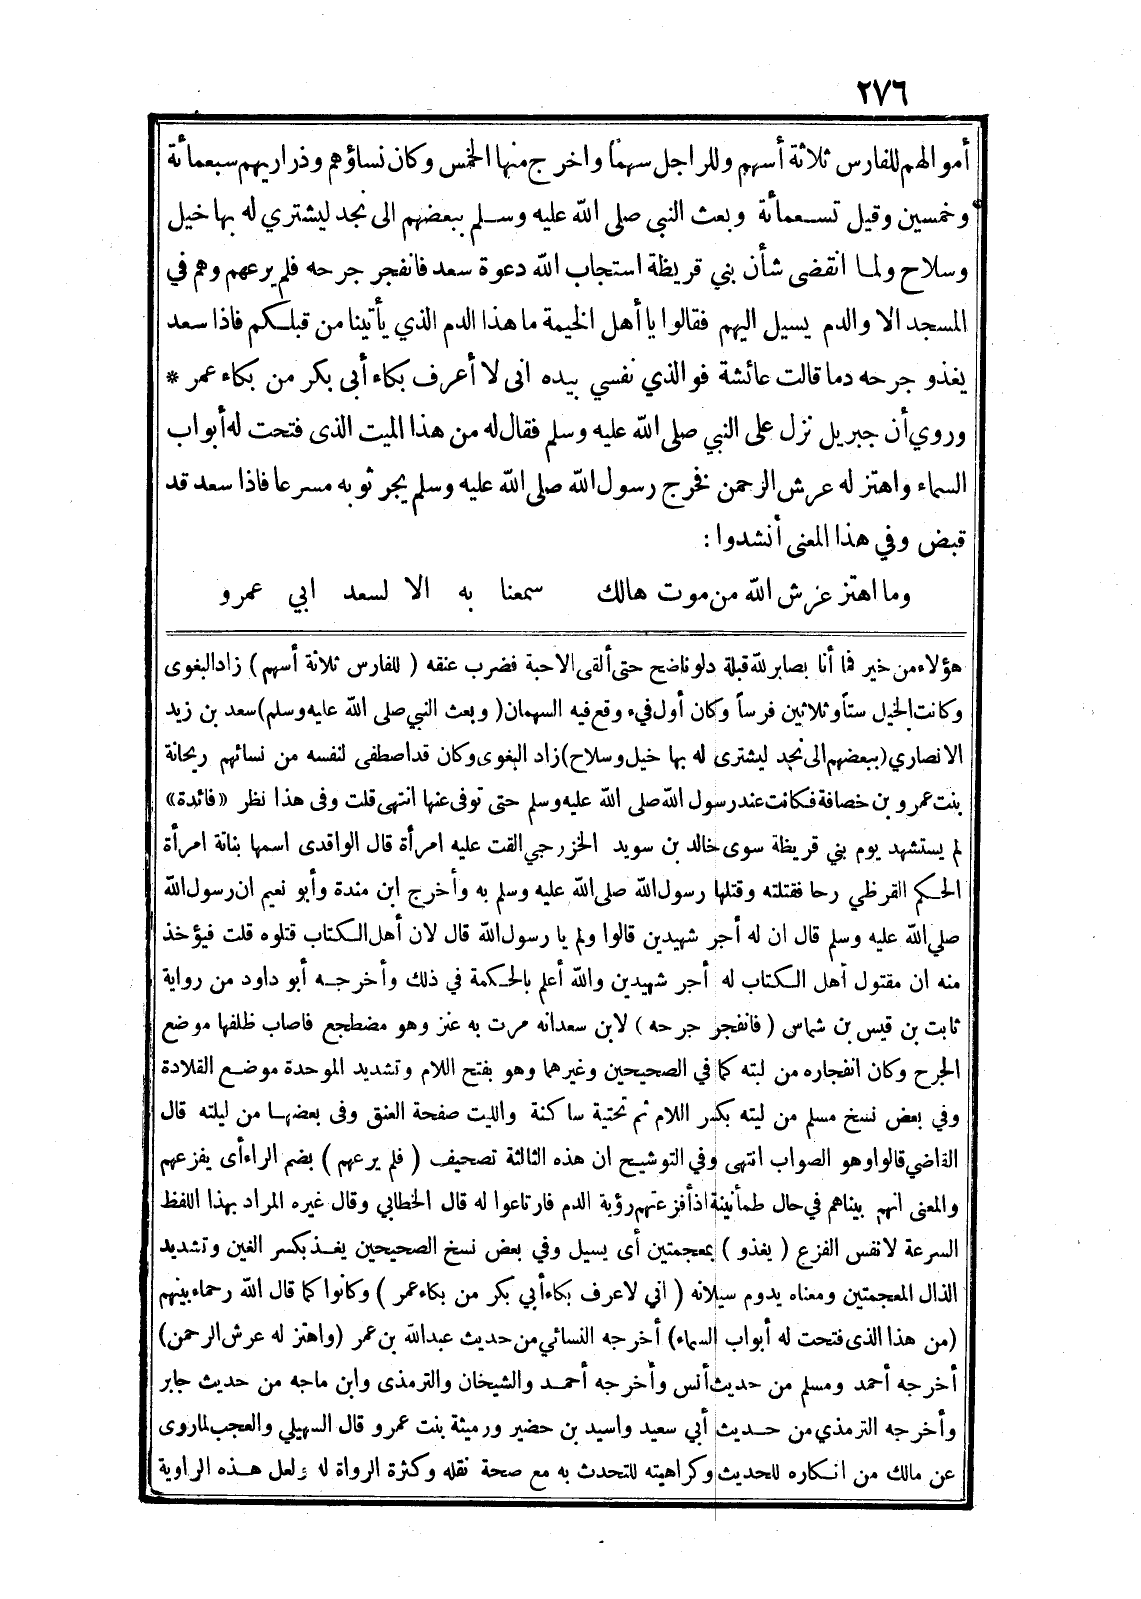 ٢٧٦
أموالهم للفارس ثلاثة أسهم وللراجل سهما واخرج منها الخمس وكان نساؤهم وذراريهم سبعمائة
وخمسين وقيل تسعمائة وبعث النبي صلى الله عليه وسلم ببعضهم الى نجد ليشتري له بها خيل
وسلاح ولما انقضى شأن بني قريظة استجاب الله دعوة سعد فانفجر جرحه فلم يرعهم وهم في
المسجد الا والدم يسيل اليهم فقالوا يا أهل الخيمة ما هذا الدم الذي يأتينا من قبلكم فاذا سعد
يغذو جرحه دما قالت عائشة فوالذي نفسي بيده انى لا أعرف بكاء أبى بكر من بكاء عمر *
وروي أن جبريل نزل على النبي صلى الله عليه وسلم فقال له من هذا الميت الذى فتحت له أبواب
السماء واهتز له عرش الرحمن فخرج رسول الله صلى الله عليه وسلم يجر ثوبه مسرعا فاذا سعد قد
قبض وفي هذا المعنى أنشدوا :
وما اهتز عرش الله من موت هالك سمعنا به الا لسعد ابي عمرو
هؤلاء من خير فما أنا بصابر لله قبلة دلو ناضح حتى ألقى الاحبة فضرب عنقه ( للفارس ثلاثة أسهم ) زاد البغوى
وكانت الخيل ستاً وثلاثين فرساً وكان أول فيء وقع فيه السهمان ( وبعث النبي صلى الله عليه وسلم ) سعد بن زيد
الانصاري ( ببعضهم الى نجد ليشترى له بها خيل وسلاح ) زاد البغوى وكان قد اصطفى لنفسه من نسائهم ريحانة
بنت عمرو بن خصافة فكانت عند رسول الله صلى الله عليه وسلم حتى توفى عنها انتهى قلت وفى هذا نظر «فائدة»
لم يستشهد يوم بني قريظة سوى خالد بن سويد الخزرجي القت عليه امرأة قال الواقدى اسمها بنانة امرأة
الحكم القرظي رحا فقتلته وقتلها رسول الله صلى الله عليه وسلم به وأخرج ابن مندة وأبو نعيم ان رسول الله
صلى الله عليه وسلم قال ان له أجر شهيدين قالوا ولم يا رسول الله قال لان أهل الكتاب قتلوه قلت فيؤخذ
منه ان مقتول أهل الكتاب له أجر شهيدين والله أعلم بالحكمة في ذلك وأخرجه أبو داود من رواية
ثابت بن قيس بن شماس ( فانفجر جرحه ) لابن سعد انه مرت به عنز وهو مضطجع فاصاب ظلفها موضع
الجرح وكان انفجاره من لبته كما في الصحيحين وغيرهما وهو بفتح اللام وتشديد الموحدة موضع القلادة
وفي بعض نسخ مسلم من ليته بكسر اللام ثم تحتية ساكنة والليت صفحة العنق وفى بعضها من ليلته قال
القاضي قالوا وهو الصواب انتهى وفي التوشيح ان هذه الثالثة تصحيف ( فلم يرعهم ) بضم الراء أى يفزعهم
والمعنى انهم بيناهم في حال طمأنينة اذ أفزعتهم رؤية الدم فارتاعوا له قال الخطابي وقال غيره المراد بهذا اللفظ
السرعة لا نفس الفزع ( يغذو ) بمعجمتين أى يسيل وفي بعض نسخ الصحيحين يغذ بكسر الغين وتشديد
الذال المعجمتين ومعناه يدوم سيلانه ( اني لاعرف بكاء أبي بكر من بكاء عمر ) وكانوا كما قال الله رحماء بينهم
(من هذا الذى فتحت له أبواب السماء) أخرجه النسائي من حديث عبدالله بن عمر (واهتز له عرش الرحمن)
أخرجه أحمد ومسلم من حديث أنس وأخرجه أحمد والشيخان والترمذى وابن ماجه من حديث جابر
وأخرجه الترمذي من حديث أبي سعيد واسيد بن حضير ورميثة بنت عمرو قال السهيلي والعجب لما روى
عن مالك من انكاره للحديث وكراهيته للتحدث به مع صحة نقله وكثرة الرواة له ولعل هذه الراوية